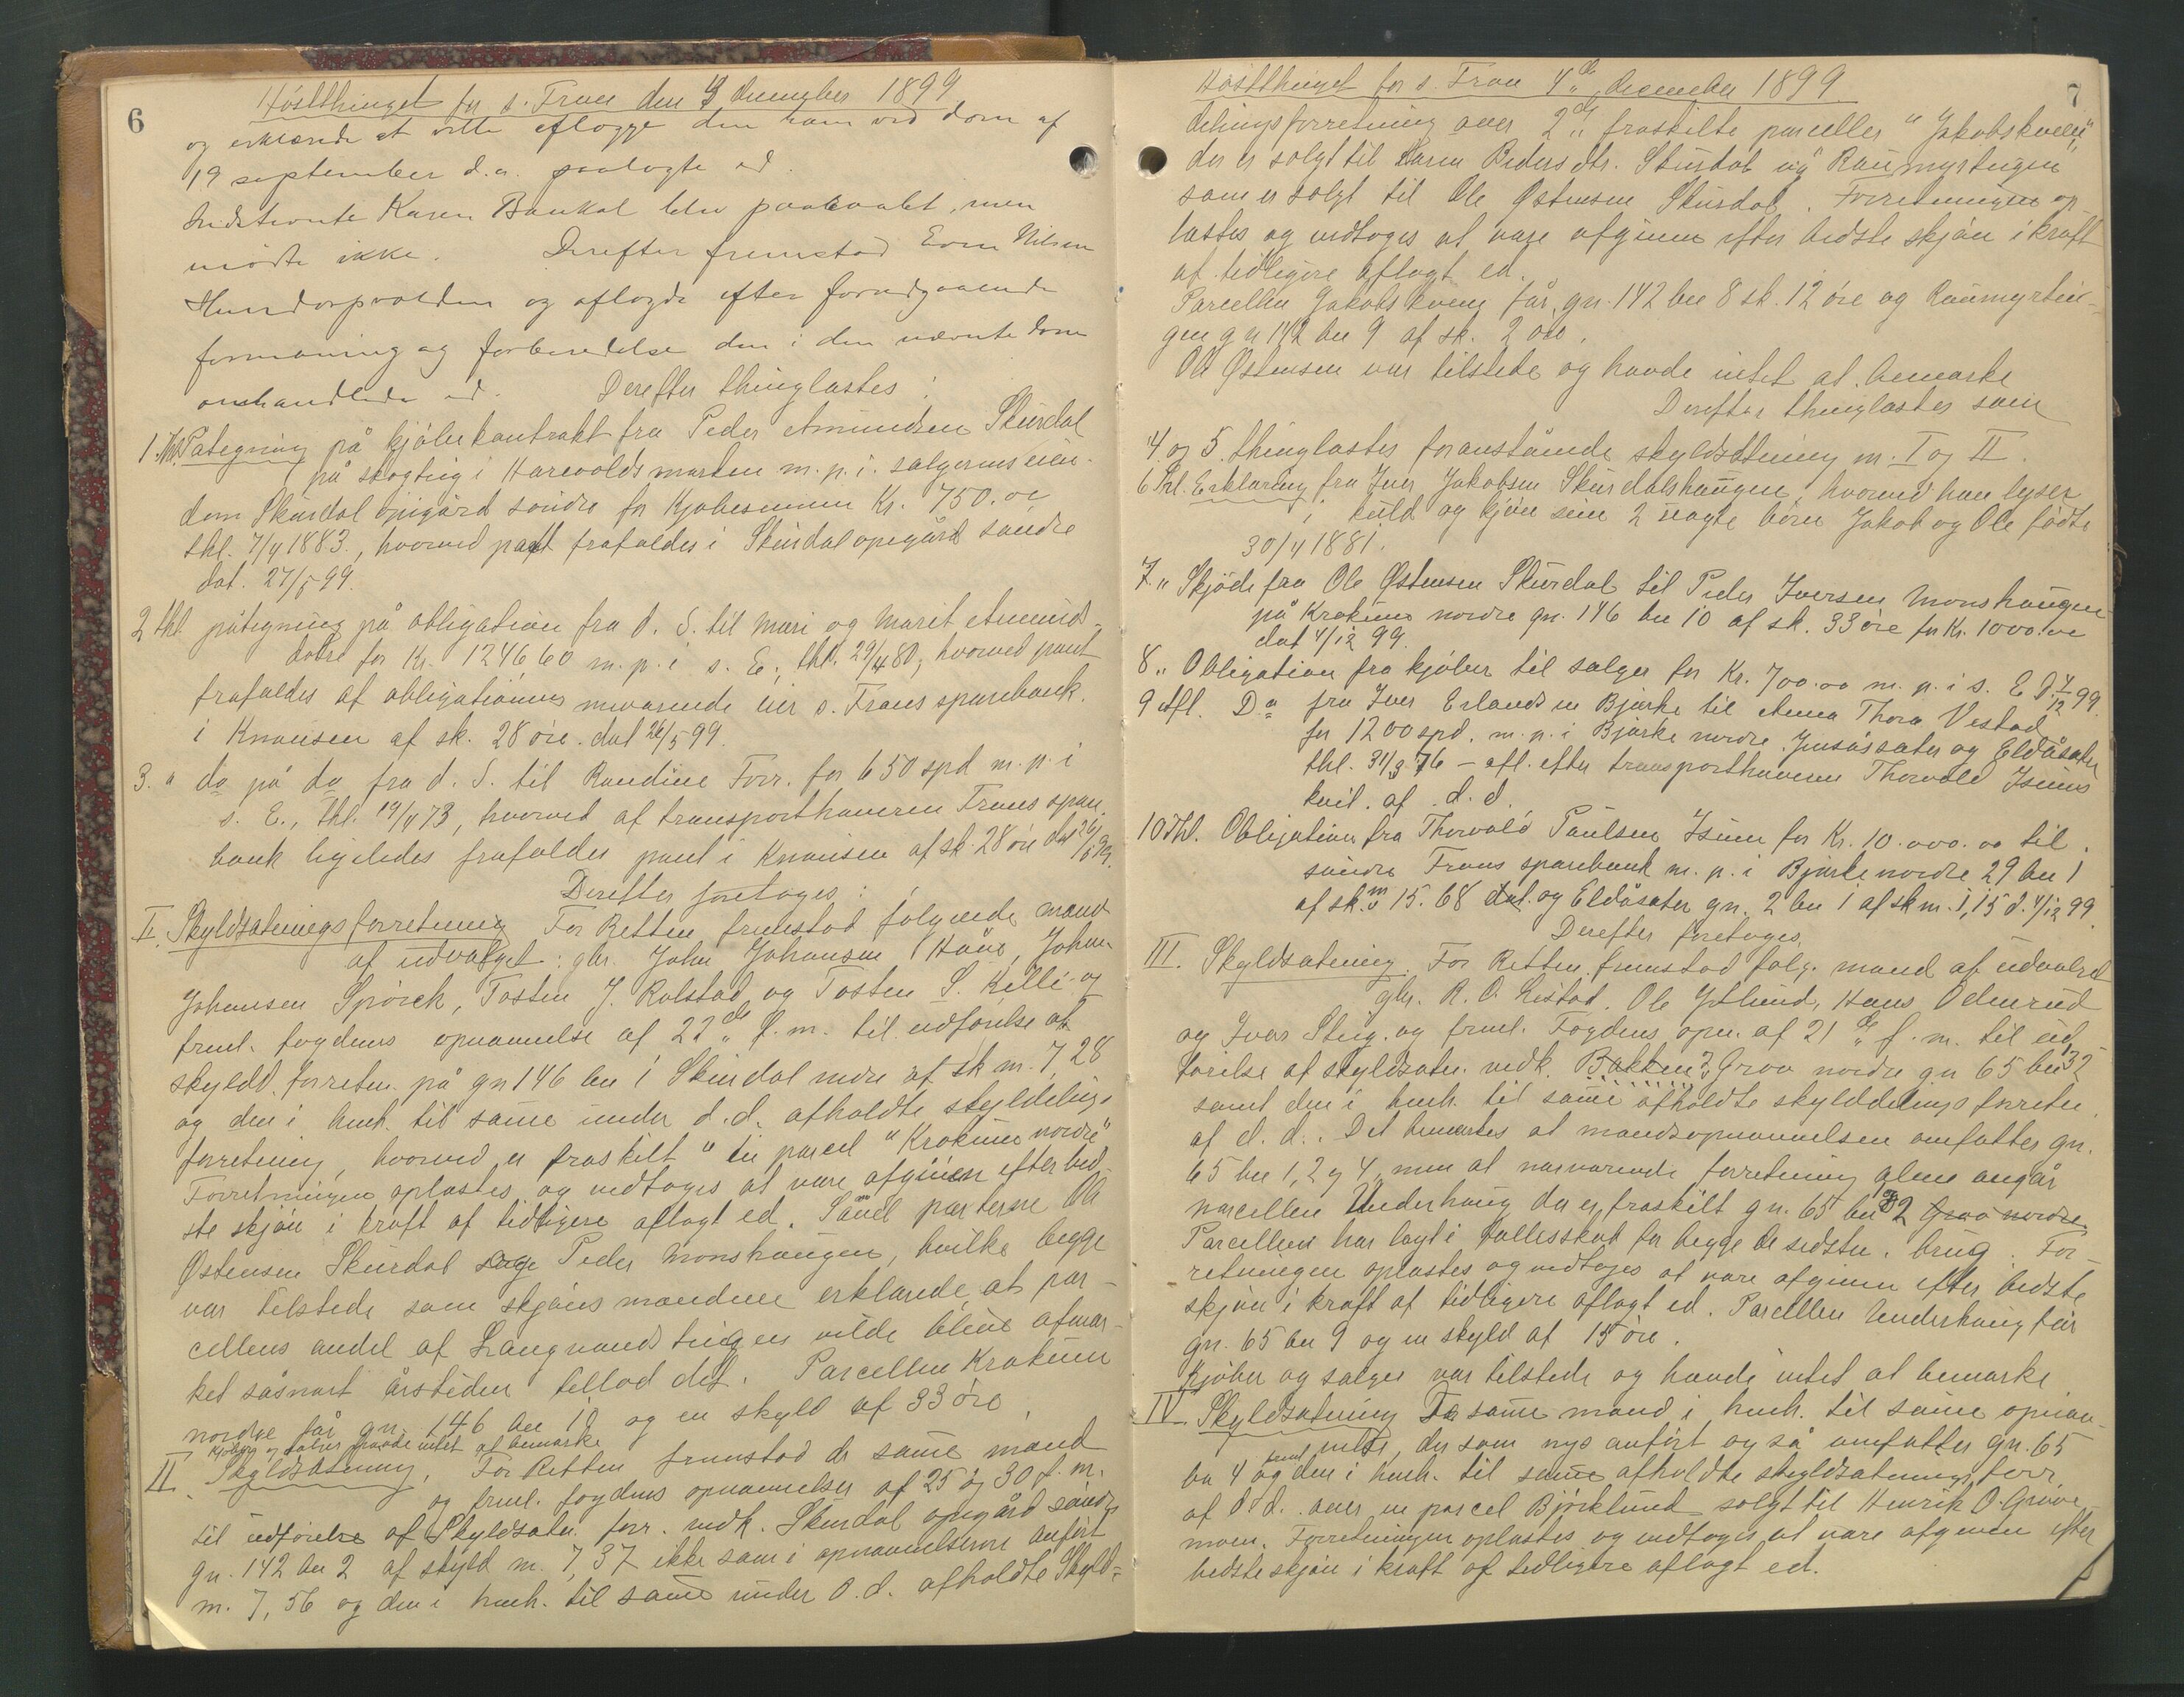 6
Høstthinget for s. Fron den 4 december 1899
og erklærede at ville aflægge den ham ved dom af
19 september d.a. paalagte ed.
Indstevnte Karen Baukal blev paaraabt, men
mødte ikke. Derefter fremstod Even Nilsen
Hundorpvolden og aflagde efter forudgaaende
formaning og forberedelse den i den nævnte dom
omhandlede ed. Derefter thinglæstes:
1. Thl. Pategning på kjøbekontrakt fra Peder Amundsen Skurdal
på skogteig i Harevoldsmarken m. p. i. sælgerens eien-
dom Skurdal opigård søndre for Kjøbesummen Kr. 750.00
thl. 7/4 1883, hvorved pant frafaldes i Skurdal opegård søndre
dat. 27/5 99.
2 thl. påtegning på obligation fra d. S. til Mari og Marit Amunds-
døtre for Kr. 1246,60 m. p. i s. E., thl. 29/4 80, hvorved pant
frafaldes af obligationens nuværende eier s. Frons sparebank.
i Knausen af sk. 28 øre. dat 26/5 99.
3. " do på do fra d. S. til Randine Forr. for 650 spd m. p. i
s. E., thl. 19/4 73, hvorved af transporthaveren Frons spare
bank ligeledes frafaldes pant i Knausen af sk. 28 øre dat 26/5 99.
Derefter foretoges:
I. Skyldsætningsforretning For Retten fremstod følgende mænd
af udvalget: gbr. John Johansen Håve, Johan
Johansen Spørck, Tosten J. Rolstad og Tosten S. Killi og
freml. fogdens opnævnelse af 22de f. m. til udførelse af
skyldd. forretn. på gn 146 bn 1 Skurdal nedre af sk m. 7,28
og den i henh. til samme under d. d. afholdte skylddelings
forretning, hvorved er fraskilt " en parcel "Krokum nordre"
Forretningen oplæstes og vedtoges at være afgiven efter bed-
ste skjøn i kraft af tidligere aflagt ed. Såvel parterne Ole
Østensen Skurdal og Peder Monshaugen, hvilke begge
var tilstede som skjønsmændene erklærede, at par-
cellens andel af Langvandsteigen vilde blive afmær-
ket såsnart årstiden tillod det. Parcellen Krokum
nordre får gn. 146 bn 10 og en skyld af 33 øre.
Kjøber og sælger havde intet at bemærke
II. Skyldsætning. For Retten fremstod de samme mænd
og freml. fogdens opnævnelser af 25 og 30 f. m.
til udførelse af Skyldsætn. forr. vedk. Skurdal opegård søndre
gn. 142 bn 2 af skyld m. 7,37 ikke som i opnævnelserne anført
m. 7,56 og den i henh. til samme under d. d. afholdte Skyld-
7
Høstthinget for s. Fron 4de december 1899
delingsforretning over 2de fraskilte parceller "Jakobskveen",
der er solgt til Karen Pedersdtr. Skurdal og "Raumyrteigen
som er solgt til Ole Østensen Skurdal. Forretningen op-
læstes og vedtoges at være afgiven efter bedste skjøn i kraft
af tidligere aflagt ed.
Parcellen Jakobskveen får gn. 142 bn 8 sk. 12 øre og Raumyrtei-
gen gn 142 bn 9 af sk. 2 øre.
Ole Østensen var tilstede og havde intet at bemærke
Derefter thinglæstes som
4. og 5. thinglæstes foranstående skyldsætning no. I og II.
6 Thl. Erklæring fra Iver Jakobsen Skurdalshaugen, hvorved han lyser
i kuld og kjøn sine 2 uægte børn Jakob og Ole fødte
30/4 1881.
7 " Skjøde fra Ole Østensen Skurdal til Peder Iversen Monshaugen
på Krokum nordre gn. 146 bn 10 af sk. 33 øre for Kr. 1000.00
dat 4/12 99.
8 " Obligation fra kjøber til sælger for Kr. 700.00 m. p. i s. E. d. 7/12 99.
9 Afl. Do fra Iver Erlandsen Bjørke til Anna Thora Vestad
for 1200 spd. m. p. i Bjørke nordre. Jusåssæter og Eldåsæter
thl. 31/3 76 – afl. efter transporthaveren Thorvald Isums
kvit. af d. d.
10 Thl. Obligation fra Thorvald Paulsen Isum for Kr. 10.000.00 til
søndre Frons sparebank m. p. i Bjørke nordre 29 bn 1
af sk. m 15.68 og Eldåsæter gn. 2 bn 1 af sk m. 1,15 d. 4/12 99.
Derefter foretoges
III. Skyldsætning. For Retten fremstod følg. mænd af udvalget
gbr. R. O. Listad. Ole Ytlund, Hans Odenrud
og Ivar Stug. og freml. Fogdens opn. af 21de f. m. til ud-
førelse af skyldsætn. vedk. Bakken Grov nordre gn 65 bn 1 32
samt den i henh. til samme afholdte skylddelings forretn.
af d. d. Det bemærkes at mandsopnævnelsen omfatter gn.
65 bn 1, 2 og 4, men at nærværende forretning alene angår
parcellen Underhaug der er fraskilt gn. 65 bn 2 Grov nordre
Parcellen har lagt i fællesskab for begge de sidstn. brug. For-
retningen oplæstes og vedtoges at være afgiven efter bedste
skjøn i kraft af tidligere aflagt ed. Parcellen Underhaug får
gn. 65 bn 9 og en skyld af 15 øre.
Kjøber og sælger var tilstede og havde intet at bemærke
IV. Skyldsætning De samme mænd i henh. til samme opnæv-
nelse, der som nys anført også omfatter gn. 65
bn 4 og freml. den i henh. til samme afholdte skyldsætnings forr.
af d. d. over en parcel Bjørklund solgt til Henrik O. Grove
moen. Forretningen oplæstes og vedtoges at være afgiven efter
bedste skjøn i kraft af tidligere aflagt ed.